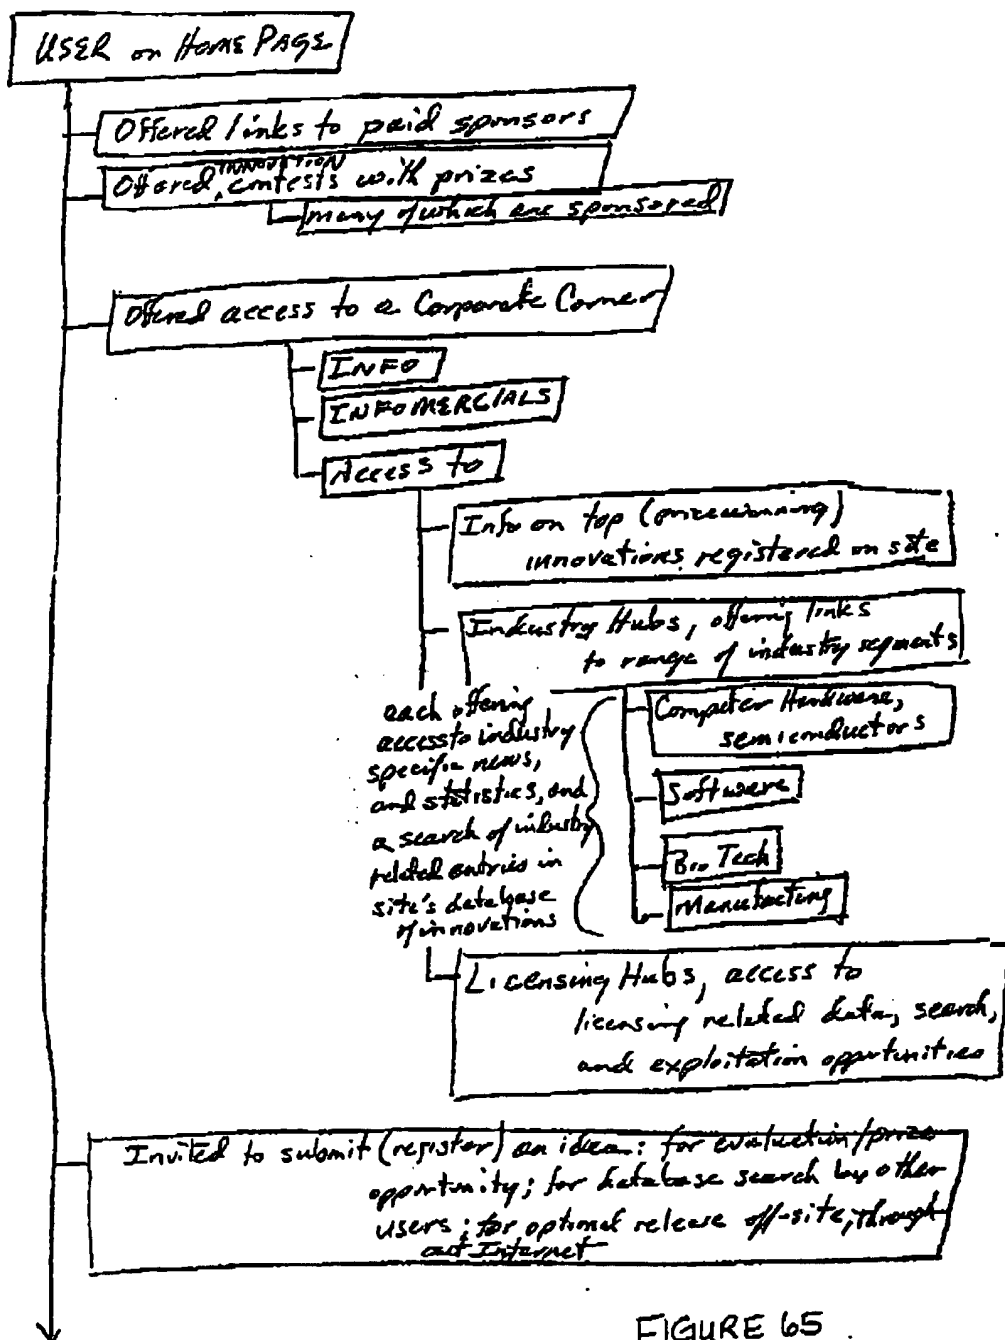 USER on HOME PAGE
Offered links to paid sponsors
INNOVATION
Offered contests with prizes
many of which are sponsored
Offered access to a Corporate Corner
INFO
INFOMERCIALS
Access to
Info on top (prizewinning)
innovations registered on site
Industry Hubs, offering links
to range of industry segments
each offering
access to industry
specific news,
and statistics, and
a search of industry
related entries in
site's database
of innovations
Computer Hardware,
semiconductors
Software
Bio Tech
Manufacturing
Licensing Hubs, access to
licensing related data, search,
and exploitation opportunities
Invited to submit (register) an idea: for evaluation/prize
opportunity; for database search by other
users; for optional release off-site, through
out Internet
FIGURE 65